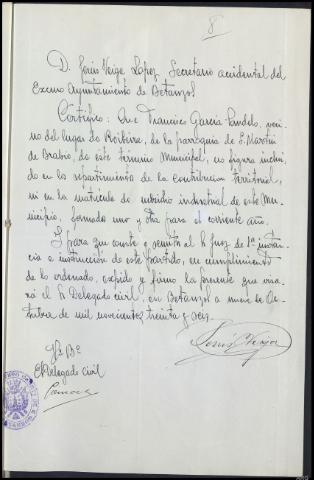 8
D. Jesús Veiga Lopez Secretario accidental del
Excmo Ayuntamiento de Betanzos
Certifico: Que Francisco García, veci-
no del lugar de Roibeira, de la parroquia de S. Martín
de Brabío, de este término Municipal, no figura inclui-
do en los repartimientos de la contribución territorial,
ni en la matrícula de subsidio industrial de este Mu-
nicipio, formados uno y otra para el corriente año.
Y para que conste y remitir al Sr Juez de 1ª instan-
cia e instrucción de este partido, en cumplimiento
de lo ordenado, expido y firmo la presente que visa-
rá el Sr Delegado civil, en Betanzos a nueve de Oc-
tubre de mil novecientos treinta y seis.
Jesús Veiga
Vº Bº
El Delegado Civil